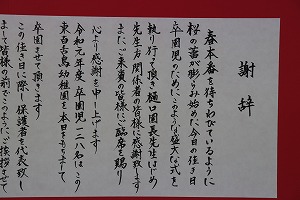 謝辞
春本番を待ちわびているように
桜の蕾が膨らみ始めた今日の佳き日
卒園児のためにこのような盛大な式を
執り行って頂き樋口園長先生はじめ
先生方関係者の皆様に感謝致します
またご来賓の皆様にご臨席を賜り
心より感謝を申し上げます
令和元年度卒園児一二八名はこの
東百舌鳥幼稚園を本日をもちまして
卒園させて頂きます
この佳き日に際し保護者を代表致し
まして皆様の前でこのようにご挨拶させて